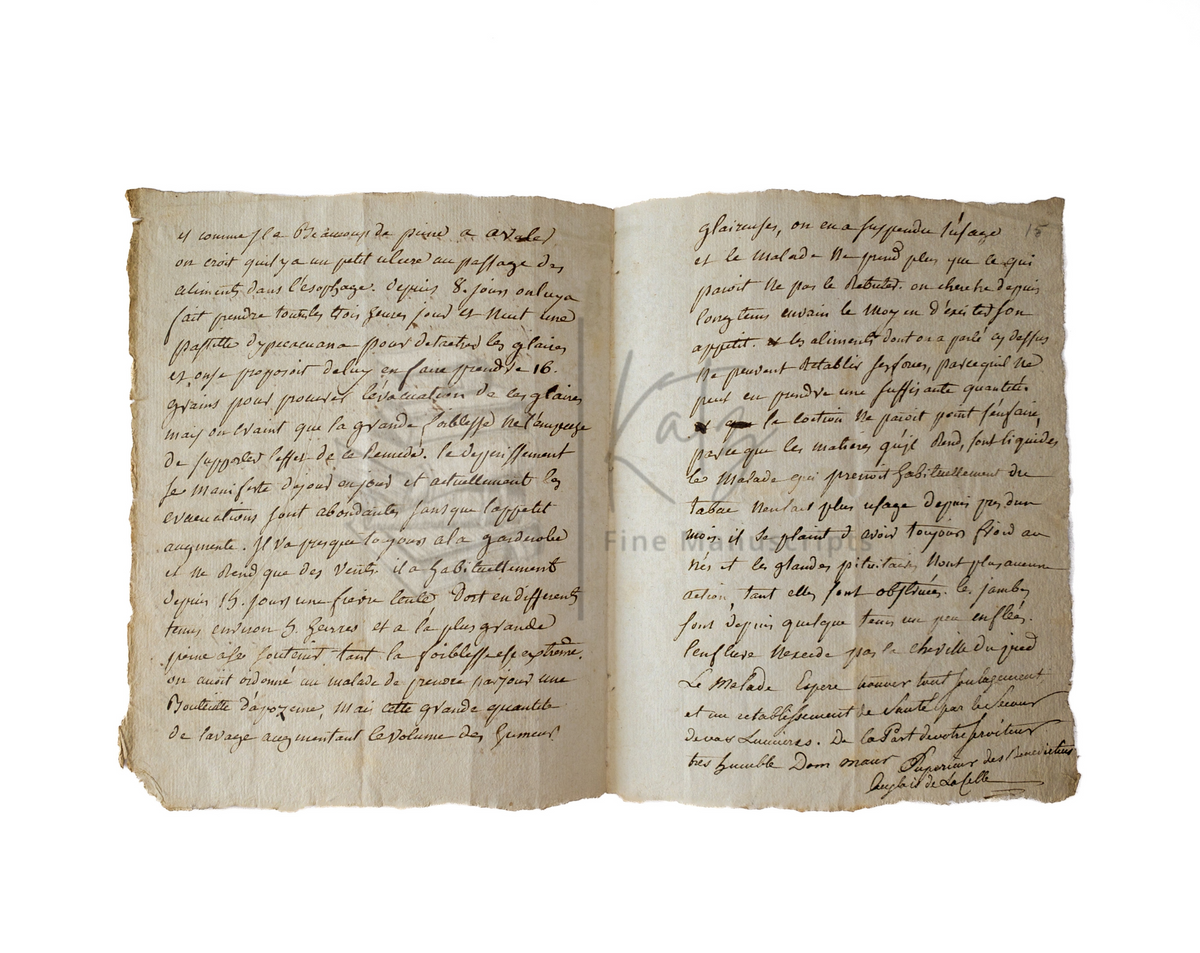 et comme il a Beaucoup de peine a avaler
on croit quil y a un petit ulcere au passage des
aliments dans l'esophage. depuis 8. jours on luy a
fait prendre toutes les trois heures jour et Nuit une
pastille dypecacuana pour detacher les glaires
et on se proposoit de luy en faire prendre 16.
grains pour procurer l'évacuation de ces glaires
mais on craint que la grande foiblesse ne l'empeche
de supporter l'effet de ce Remede. le deperissement
se manifeste de jour en jour et actuellement les
evacuations sont abondantes sans que l'appetit
augmente. Il va presque toujours a la garderobe
et ne Rend que des Vents. il a habituellement
depuis 15. jours une fievre lente Dort en differents
tems environ 5. heures et a la plus grande
peine a se soutenir, tant la foiblesse est extrême.
on avoit ordonné au malade de prendre par jour une
Bouteille d'apozeme, Mais cette grande quantité
de lavage augmentant le volume des humeurs
glaireuses, on en a suspendu l'usage 15
et le Malade Ne prend plus que ce qui
paroit Ne pas le Rebuter. on cherche depuis
longtems envain le Moyen d'exciter son
appetit. les aliments dont on a parlé cy dessus
Ne peuvent Retablir ses forces, parcequil Ne
peut en prendre une suffisante quantité.
la coction Ne paroit point s'en faire,
parce que les matieres qu'il Rend, sont liquides
le Malade qui prenoit habituellement du
tabac N'en fait plus usage depuis pres d'un
mois, il se plaint d'avoir toujours froid au
Nés et les glandes pituitaires N'ont plus aucune
action, tant elles sont obstruées. les jambes
sont depuis quelque tems un peu enflées.
l'enflure N'excede pas la cheville du pied
Le Malade Espere trouver tout soulagement
et un retablissement de santé par le secours
de vos Lumieres. De la Part de votre serviteur
tres humble Dom Maur Superieur des Benedictins
Anglois de La Celle
Katz
Fine Manuscripts